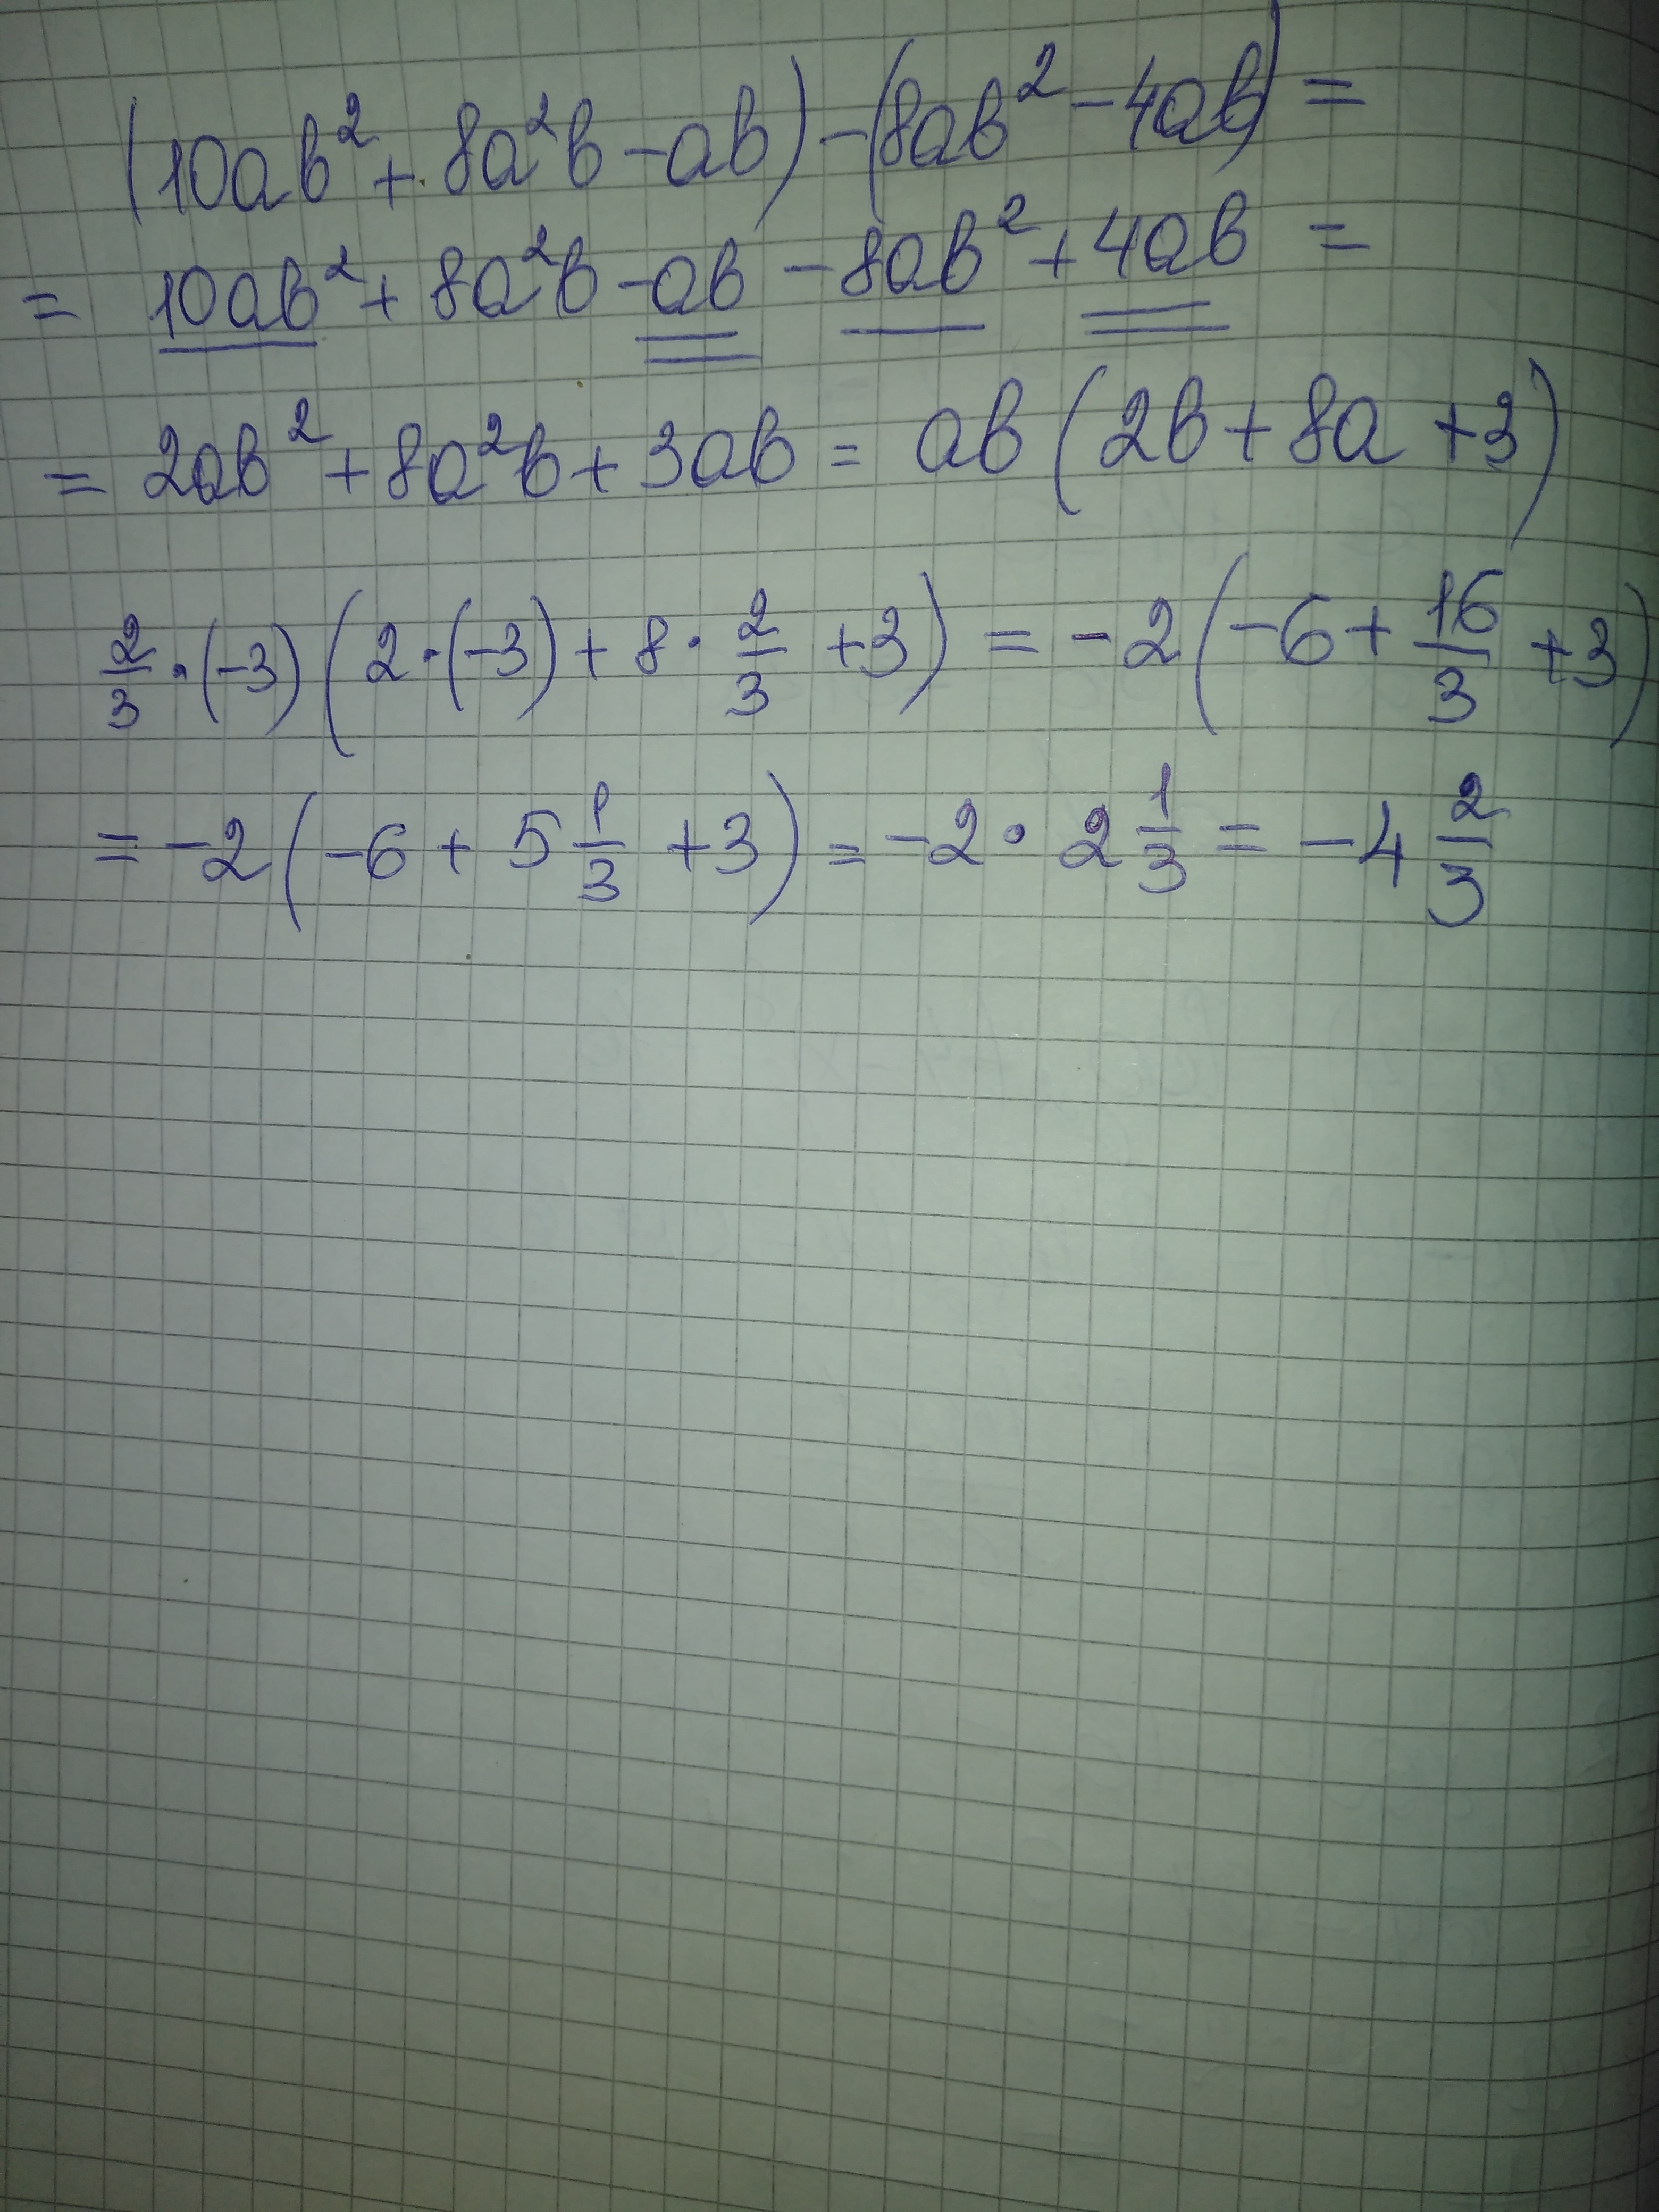 (10ab² + 8a²b - ab) - (8ab² - 4ab) =
= 10ab² + 8a²b - ab - 8ab² + 4ab =
= 2ab² + 8a²b + 3ab = ab (2b + 8a + 3)
2/3 · (-3) (2 · (-3) + 8 · 2/3 + 3) = -2 (-6 + 16/3 + 3)
= -2 (-6 + 5 1/3 + 3) = -2 · 2 1/3 = -4 2/3